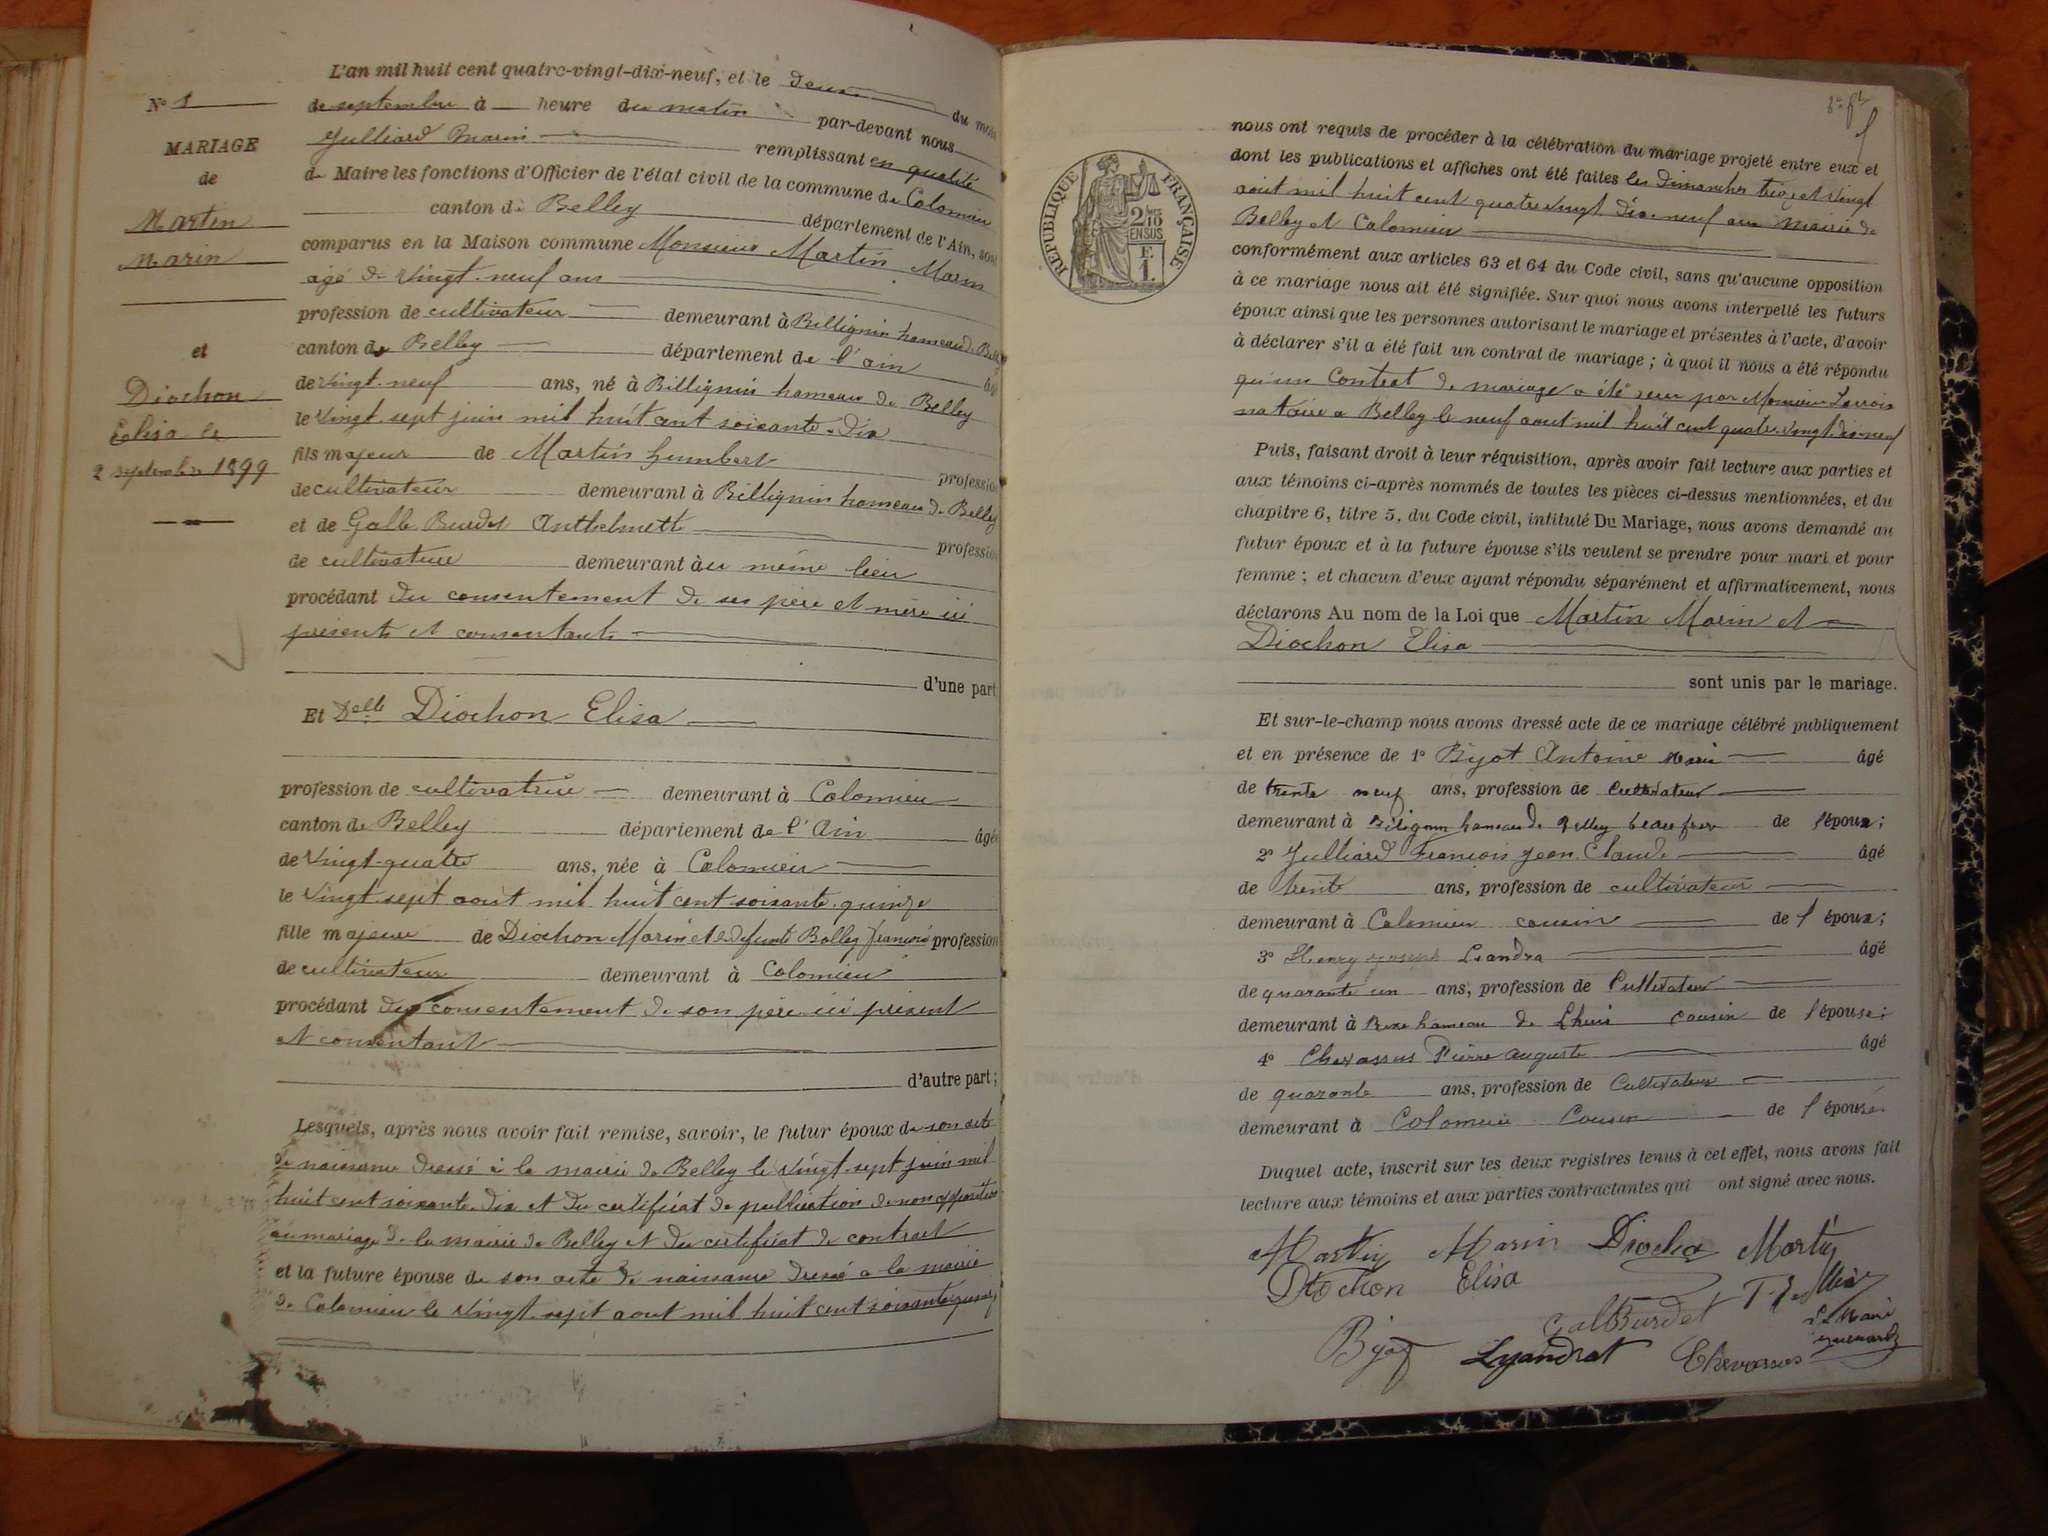 L'an mil huit cent quatre-vingt-dix-neuf, et le deux du mois
de septembre à heure du matin par-devant nous
Julliard Marin remplissant en qualité
de Maire les fonctions d'Officier de l'état civil de la commune de Colomieu
canton de Belley département de l'Ain, sont
comparus en la Maison commune Monsieur Martin Marin
agé de vingt-neuf ans
profession de cultivateur demeurant à Billignin hameau de Belley
canton de Belley département de l'ain âgé
de vingt-neuf ans, né à Billignin hameau de Belley
le vingt sept juin mil huit cent soixante-dix
fils majeur de Martin humbert profession
de cultivateur demeurant à Billignin hameau de Belley
et de Gallb Burdet Anthelmette profession
de cultivatrice demeurant à au même lieu
procédant du consentement de ses père et mère ici
présents et consentants
d'une part
Et Delle Diochon Elisa
profession de cultivatrice demeurant à Colomieu
canton de Belley département de l'Ain âgée
de vingt-quatre ans, née à Colomieu
le vingt sept aout mil huit cent soixante-quinze
fille majeure de Diochon Marin et de defunte Bolley françoise profession
de cultivateur demeurant à Colomieu
procédant du consentement de son père ici présent
et consentant
d'autre part;
Lesquels, après nous avoir fait remise, savoir, le futur époux de son acte
de naissance dressé à la mairie de Belley le vingt-sept juin mil
huit cent soixante-dix et du certificat de publication de non opposition
au mariage de la mairie de Belley et du certificat de contrat
et la future épouse de son acte de naissance dressé a la mairie
de Colomieu le vingt-sept aout mil huit cent soixante quinze
N° 1
MARIAGE
de
Martin
Marin
et
Diochon
Eclisa le
2 septembre 1899
REPUBLIQUE FRANÇAISE
2/10 EN SUS
F.
1.
nous ont requis de procéder à la célébration du mariage projeté entre eux et
dont les publications et affiches ont été faites les Dimanches treize et vingt
aout mil huit cent quatre vingt dix-neuf aux mairie de
Belley et Colomieu
conformément aux articles 63 et 64 du Code civil, sans qu'aucune opposition
à ce mariage nous ait été signifiée. Sur quoi nous avons interpellé les futurs
époux ainsi que les personnes autorisant le mariage et présentes à l'acte, d'avoir
à déclarer s'il a été fait un contrat de mariage; à quoi il nous a été répondu
qu'un Contrat de mariage a été recu par Monsieur
notaire a Belley le neuf aout mil huit cent quatre-vingt-dix-neuf
Puis, faisant droit à leur réquisition, après avoir fait lecture aux parties et
aux témoins ci-après nommés de toutes les pièces ci-dessus mentionnées, et du
chapitre 6, titre 5, du Code civil, intitulé Du Mariage, nous avons demandé au
futur époux et à la future épouse s'ils veulent se prendre pour mari et pour
femme; et chacun d'eux ayant répondu séparément et affirmativement, nous
déclarons Au nom de la Loi que Martin Marin et
Diochon Elisa
sont unis par le mariage.
Et sur-le-champ nous avons dressé acte de ce mariage célébré publiquement
et en présence de 1° Bijot Antoine Marie âgé
de trente neuf ans, profession de cultivateur
demeurant à Bilignin hameau de Belley beau frere de l'époux;
2° Julliard François Jean Claude âgé
de trente ans, profession de cultivateur
demeurant à Colomieu cousin de l'époux;
3° Henry joseph Leandra âgé
de quarante un ans, profession de Cultivateur
demeurant à hameau de Lhuis cousin de l'épouse;
4° Chevassus Pierre auguste âgé
de quarante ans, profession de Cultivateur
demeurant à Colomieu Cousin de l'épouse.
Duquel acte, inscrit sur les deux registres tenus à cet effet, nous avons fait
lecture aux témoins et aux parties contractantes qui ont signé avec nous.
Martin Marin Diochon Martin
Diochon Elisa
GalBurdet
Bijot Lyandrat Chevassus